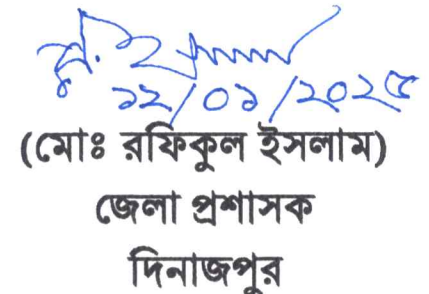 ১২/০১/২০২৫
(মোঃ রফিকুল ইসলাম)
জেলা প্রশাসক
দিনাজপুর